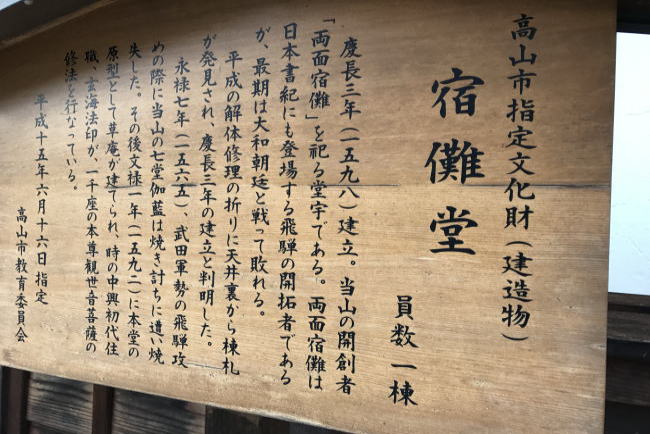 高山市指定文化財（建造物）
宿儺堂
員数 一棟
慶長三年（一五九八）建立。当山の開創者
「両面宿儺」を祀る堂宇である。両面宿儺は
日本書紀にも登場する飛騨の開拓者である
が、最期は大和朝廷と戦って敗れる。
平成の解体修理の折りに天井裏から棟札
が発見され、慶長三年の建立と判明した。
永禄七年（一五六五）、武田軍勢の飛騨攻
めの際に当山の七堂伽藍は焼き討ちに遭い焼
失した。その後文禄一年（一五九二）に本堂の
原型として草庵が建てられ、時の中興初代住
職、玄海法印が、一千座の本尊観世音菩薩の
修法を行なっている。
平成十五年六月十六日指定
高山市教育委員会